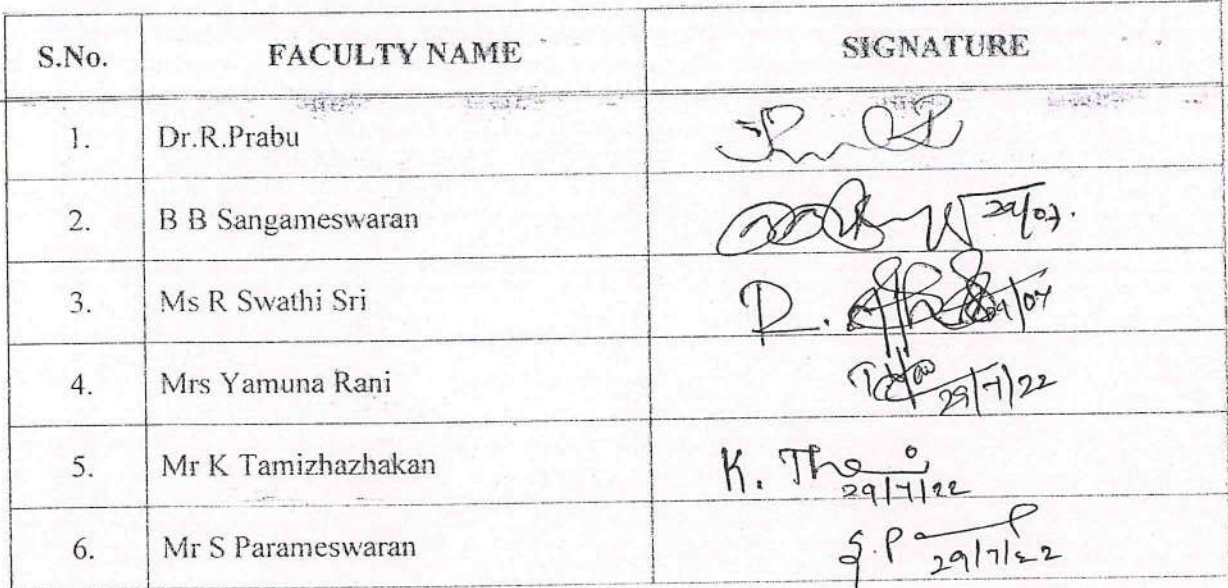 S.No. FACULTY NAME SIGNATURE
1. Dr.R.Prabu
2. B B Sangameswaran 29/07.
3. Ms R Swathi Sri
4. Mrs Yamuna Rani 29/7/22
5. Mr K Tamizhazhakan K.
29/7/22
6. Mr S Parameswaran S.P
29/7/22